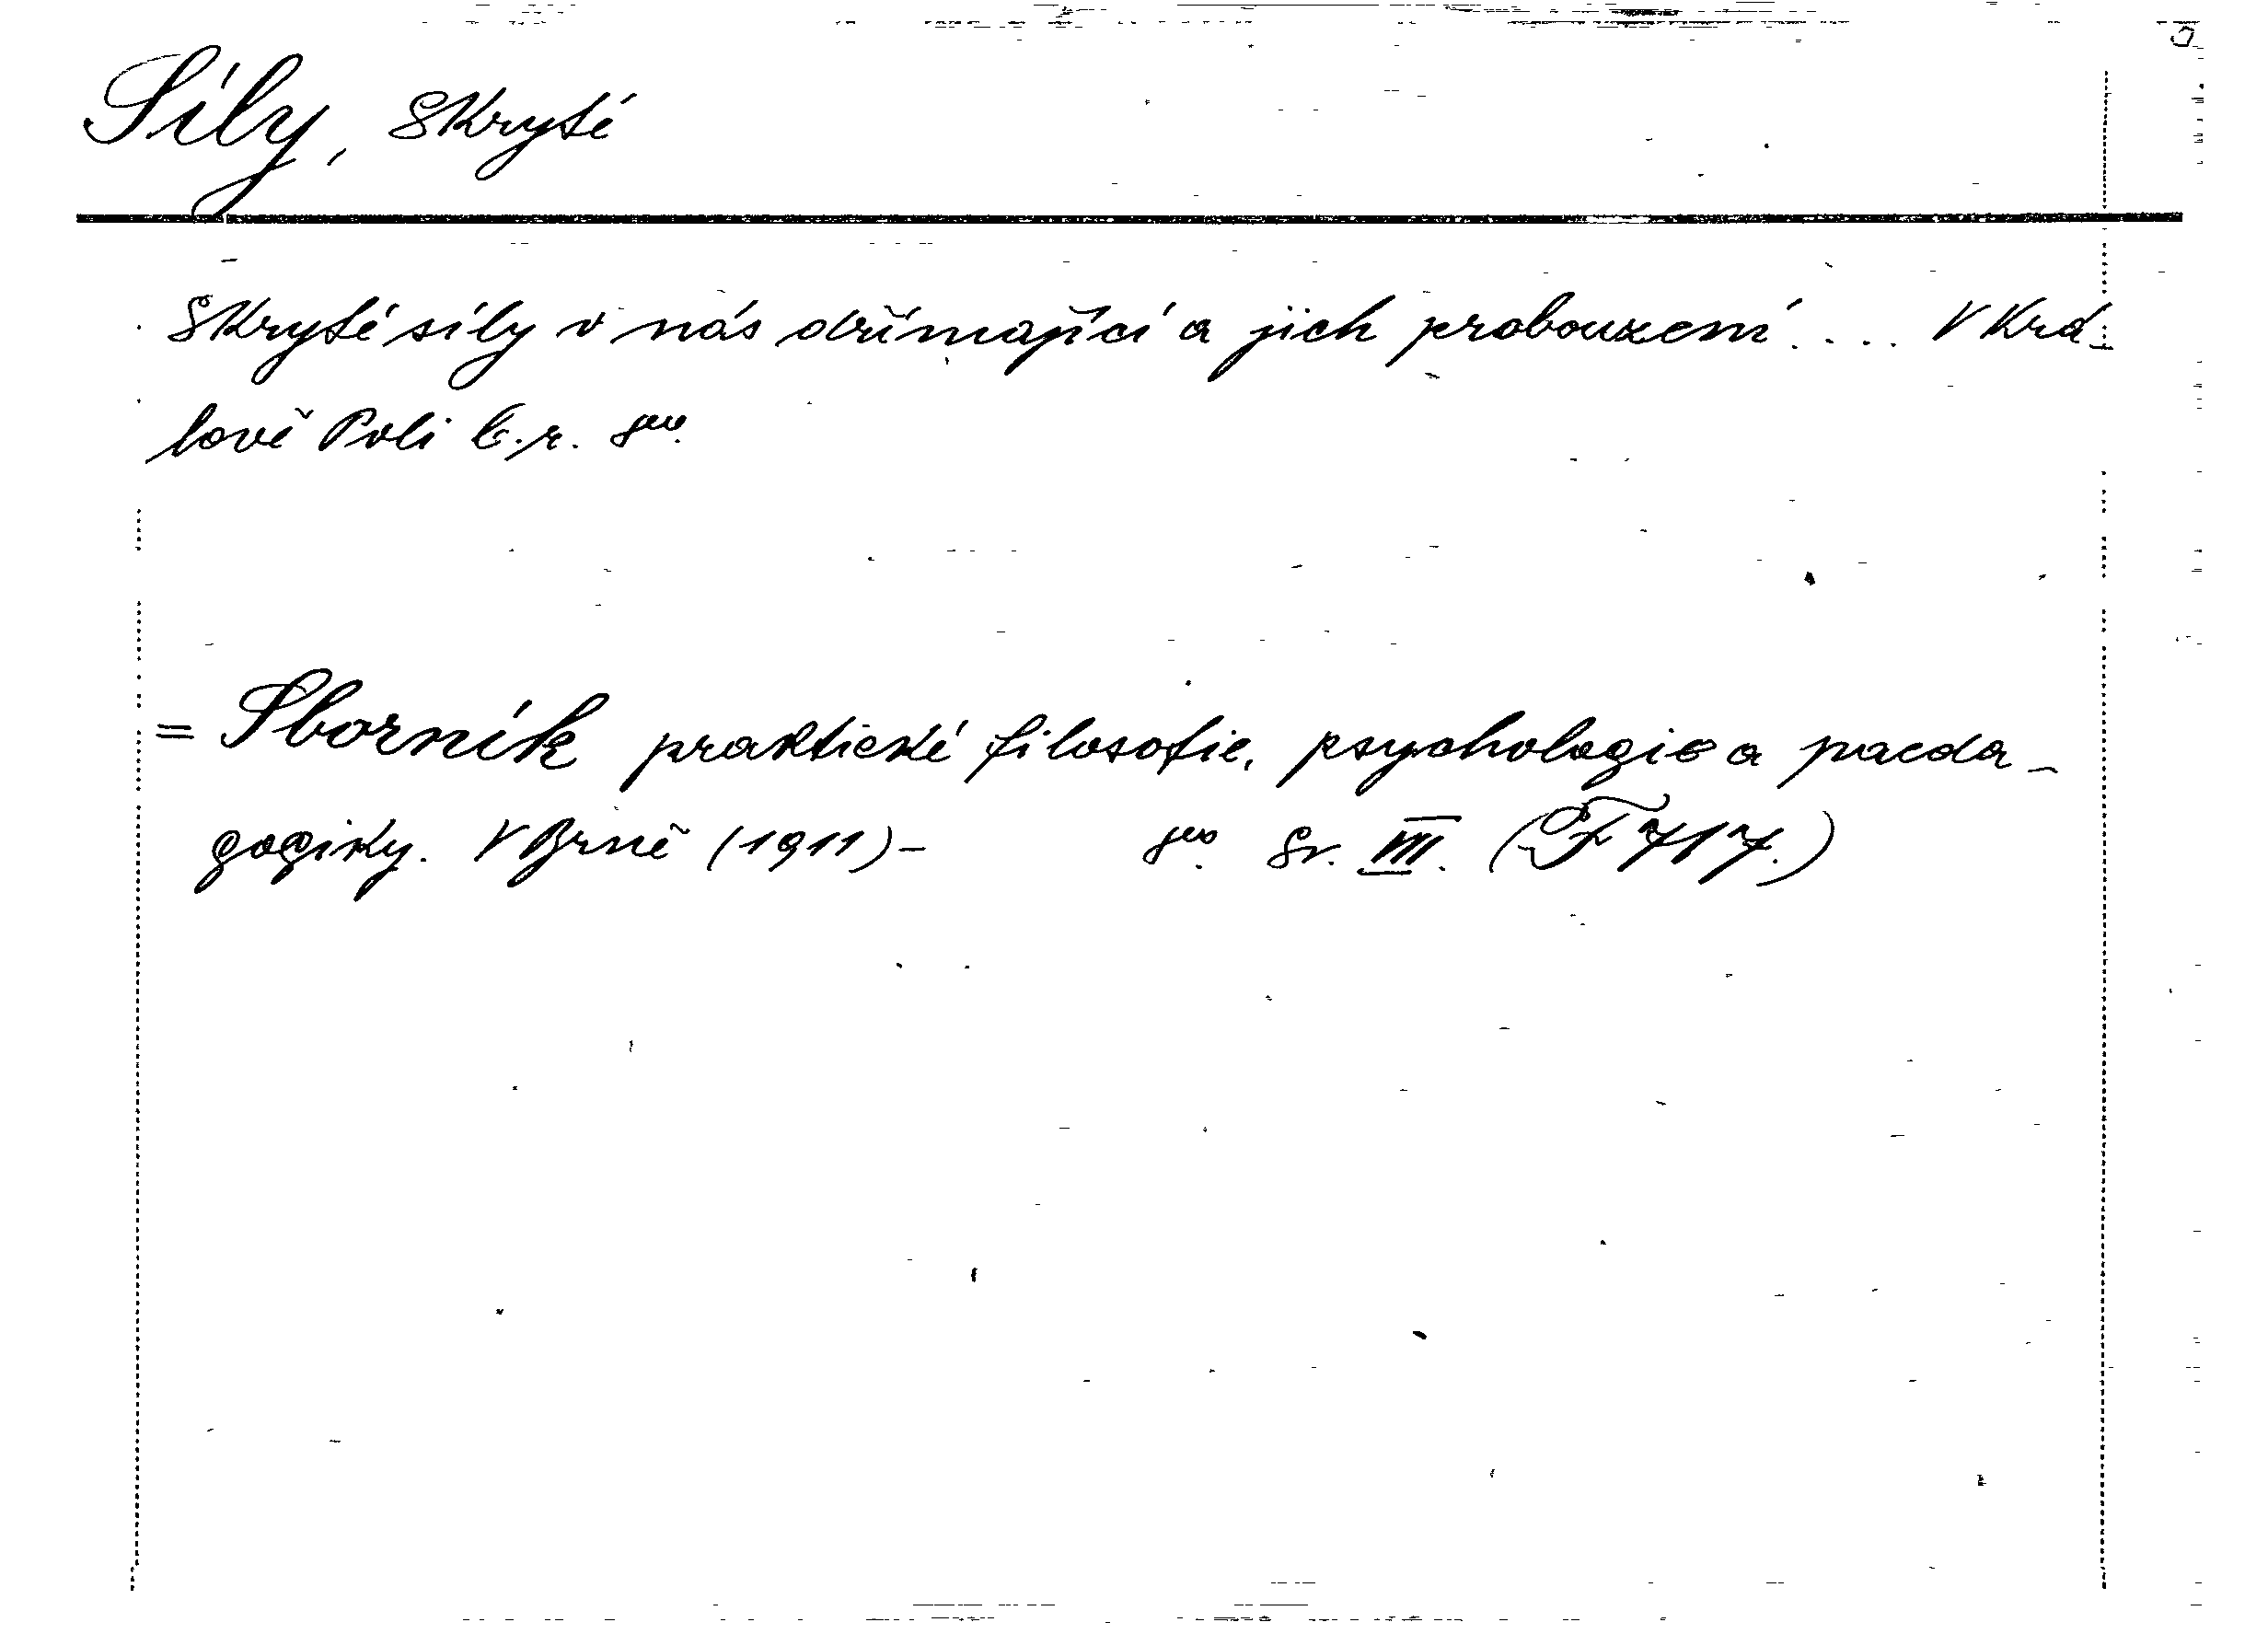 Síly, skryté
Skryté síly v nás dřímající a jich probouzení.... V Krá-
lově Poli b.r. 8vo.
= Sborník praktické filosofie, psychologie a paeda-
gogiky. V Brně (1911)- 8vo. Sv. VIII. (F 717.)